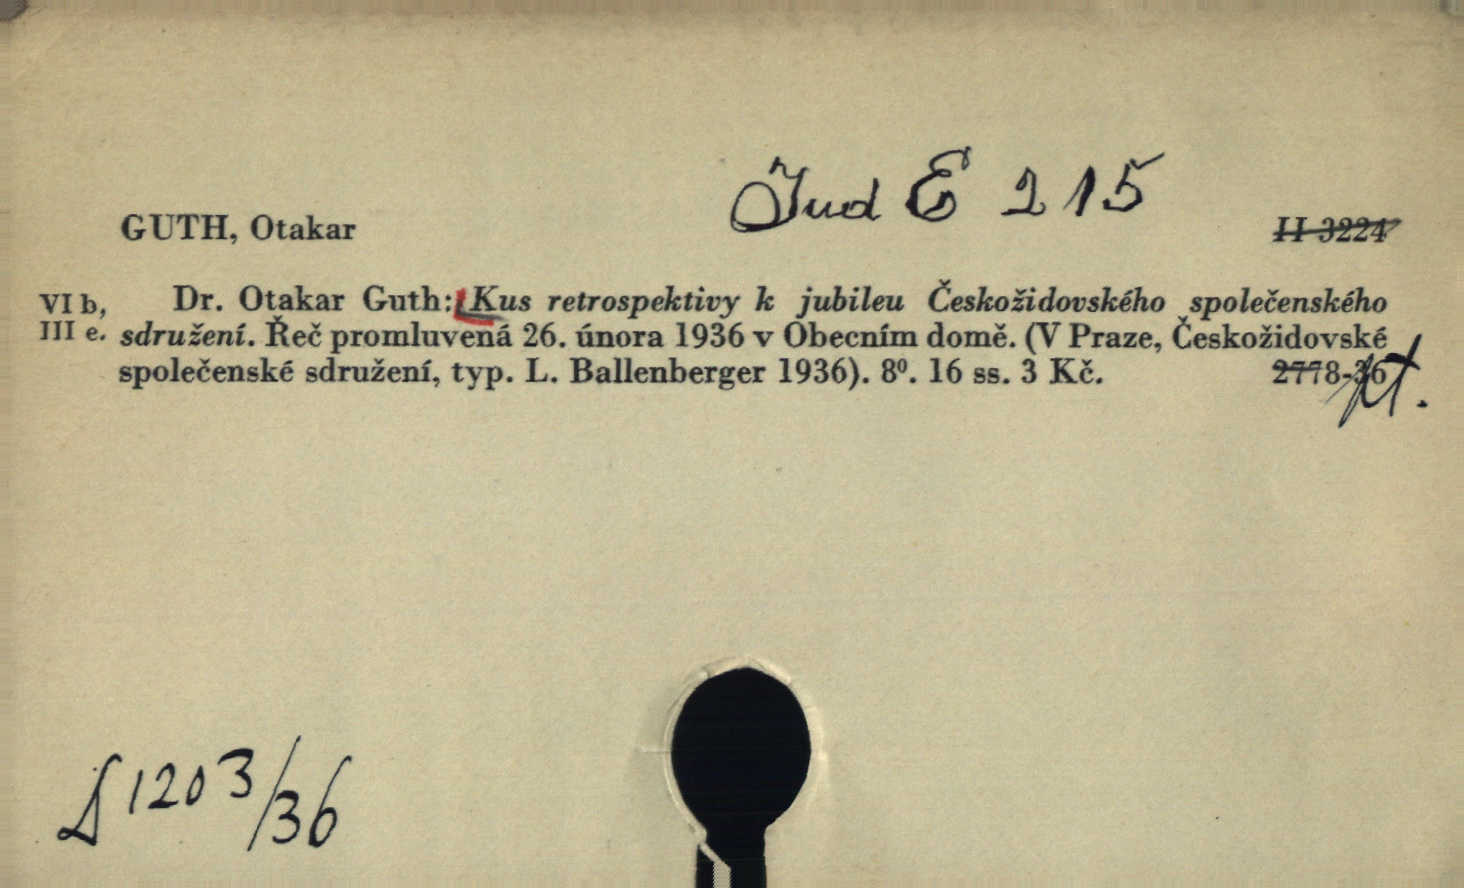 Jud E 215
GUTH, Otakar II 3224
VI b, Dr. Otakar Guth: Kus retrospektivy k jubileu Českožidovského společenského
III e. sdružení. Řeč promluvená 26. února 1936 v Obecním domě. (V Praze, Českožidovské
společenské sdružení, typ. L. Ballenberger 1936). 8⁰. 16 ss. 3 Kč. 2778-36
1203/36